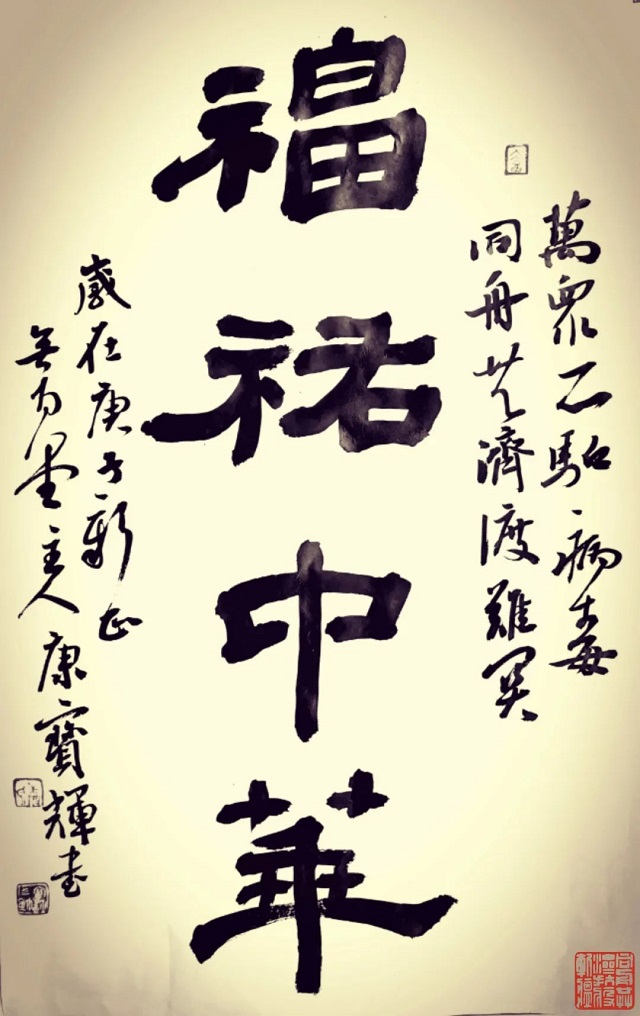 萬眾一心駈病毒
同舟共濟渡難關
福祐中華
歲在庚子新正
主人康寶輝書